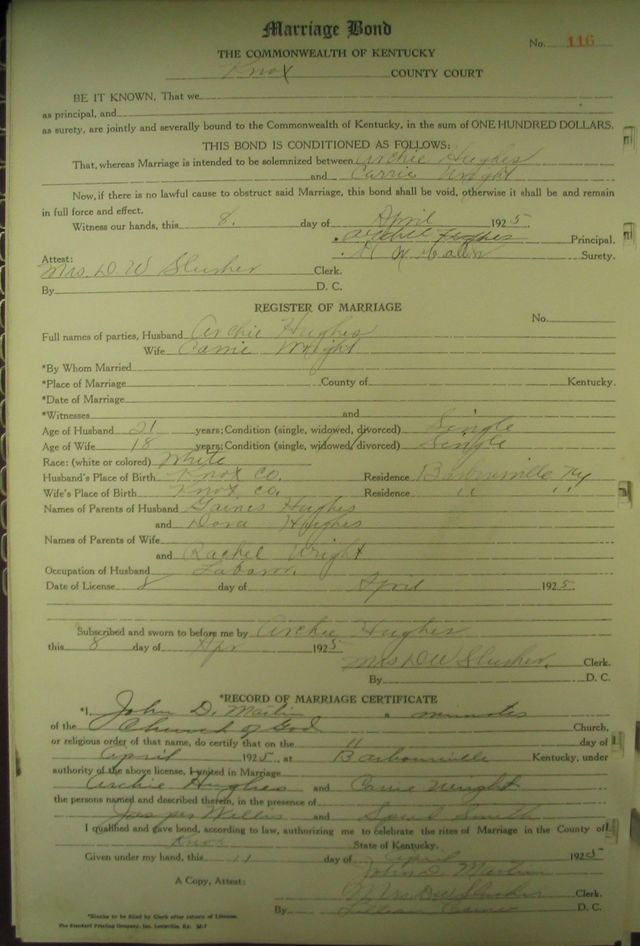 Marriage Bond
No. 116
THE COMMONWEALTH OF KENTUCKY
Knox COUNTY COURT
BE IT KNOWN, That we
as principal, and
as surety, are jointly and severally bound to the Commonwealth of Kentucky, in the sum of ONE HUNDRED DOLLARS.
THIS BOND IS CONDITIONED AS FOLLOWS:
That, whereas Marriage is intended to be solemnized between Archie Hughes
and Carrie Wright
Now, if there is no lawful cause to obstruct said Marriage, this bond shall be void, otherwise it shall be and remain
in full force and effect.
Witness our hands, this 8. day of April 1925.
Archie Hughes Principal.
Surety.
Attest:
Mrs. D W Slusher Clerk.
By D. C.
REGISTER OF MARRIAGE
No.
Full names of parties, Husband Archie Hughes
Wife Carrie Wright
*By Whom Married
*Place of Marriage County of Kentucky.
*Date of Marriage
*Witnesses and
Age of Husband 21 years; Condition (single, widowed, divorced) Single
Age of Wife 18 years; Condition (single, widowed, divorced) Single
Race: (white or colored) White
Husband's Place of Birth Knox Co. Residence Barbourville Ky
Wife's Place of Birth Knox Co. Residence " "
Names of Parents of Husband Gaines Hughes
and Dora Hughes
Names of Parents of Wife
and Rachel Wright
Occupation of Husband Labor.
Date of License 8 day of April 1925.
Subscribed and sworn to before me by Archie Hughes
this 8 day of Apr 1925
Mrs D W Slusher. Clerk.
By D. C.
*RECORD OF MARRIAGE CERTIFICATE
*I, John D. Martin a
of the Church of God Church,
or religious order of that name, do certify that on the 11 day of
April 1925, at Barbourville Kentucky, under
authority of the above license, I united in Marriage
Archie Hughes and Carrie Wright
the persons named and described therein, in the presence of
Jasper Willis and Smith
I qualified and gave bond, according to law, authorizing me to celebrate the rites of Marriage in the County of
Knox State of Kentucky.
Given under my hand, this 11 day of April 1925
John D. Martin
A Copy, Attest: Mrs D W Slusher Clerk.
By Lillian D. C.
*Blanks to be filled by Clerk after return of License.
The Standard Printing Company, Inc. Louisville, Ky. M-7